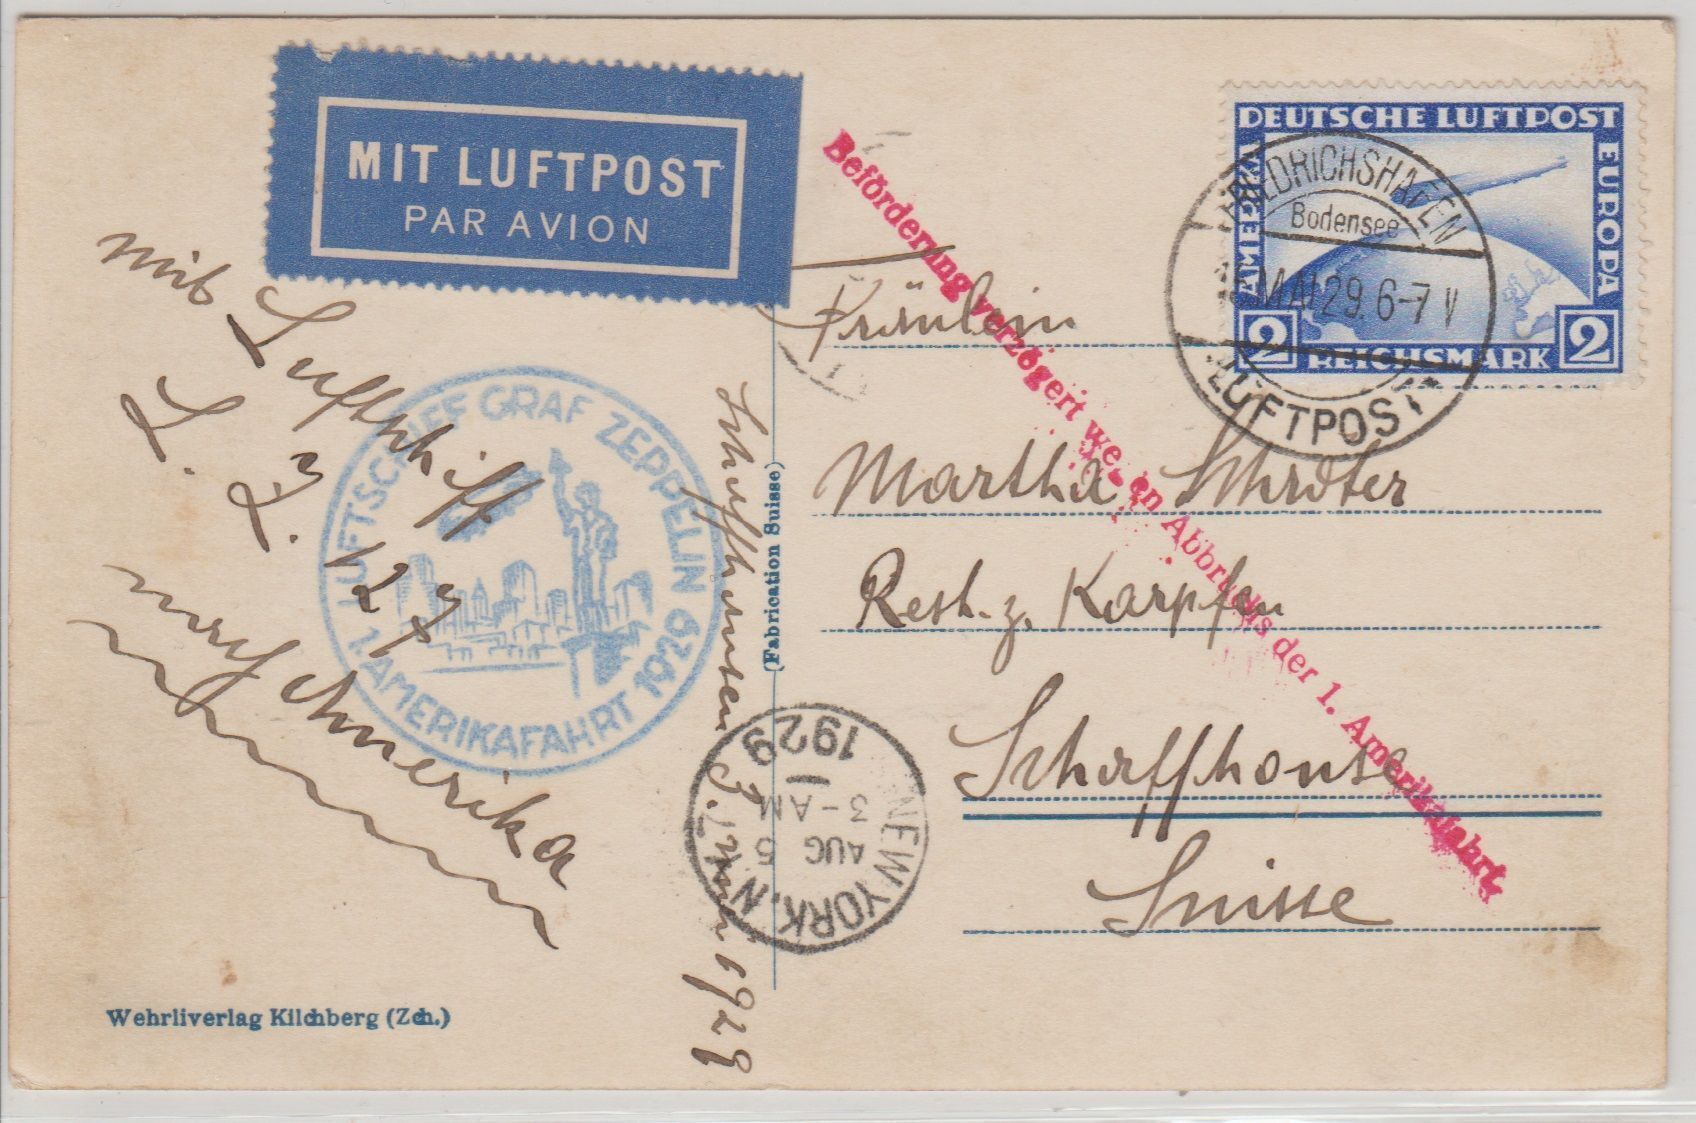 MIT LUFTPOST
PAR AVION
mit Luftschiff
L. Z. 127
nach Amerika
LUFTSCHIFF GRAF ZEPPELIN
1. AMERIKAFAHRT 1929
Wehrliverlag Kilchberg (Zch.)
Schaffhausen 1929
(Fabrication Suisse)
NEW YORK, N.
AUG 5
3-AM
1929
Beförderung verzögert wegen Abbruchs der 1. Amerikafahrt
DEUTSCHE LUFTPOST
AMERIKA
EUROPA
2 REICHSMARK 2
FRIEDRICHSHAFEN
Bodensee
MAI 29. 6-7 V
LUFTPOST
Fräulein
Martha Schröter
Rest. z. Karpfen
Schaffhouse
Suisse